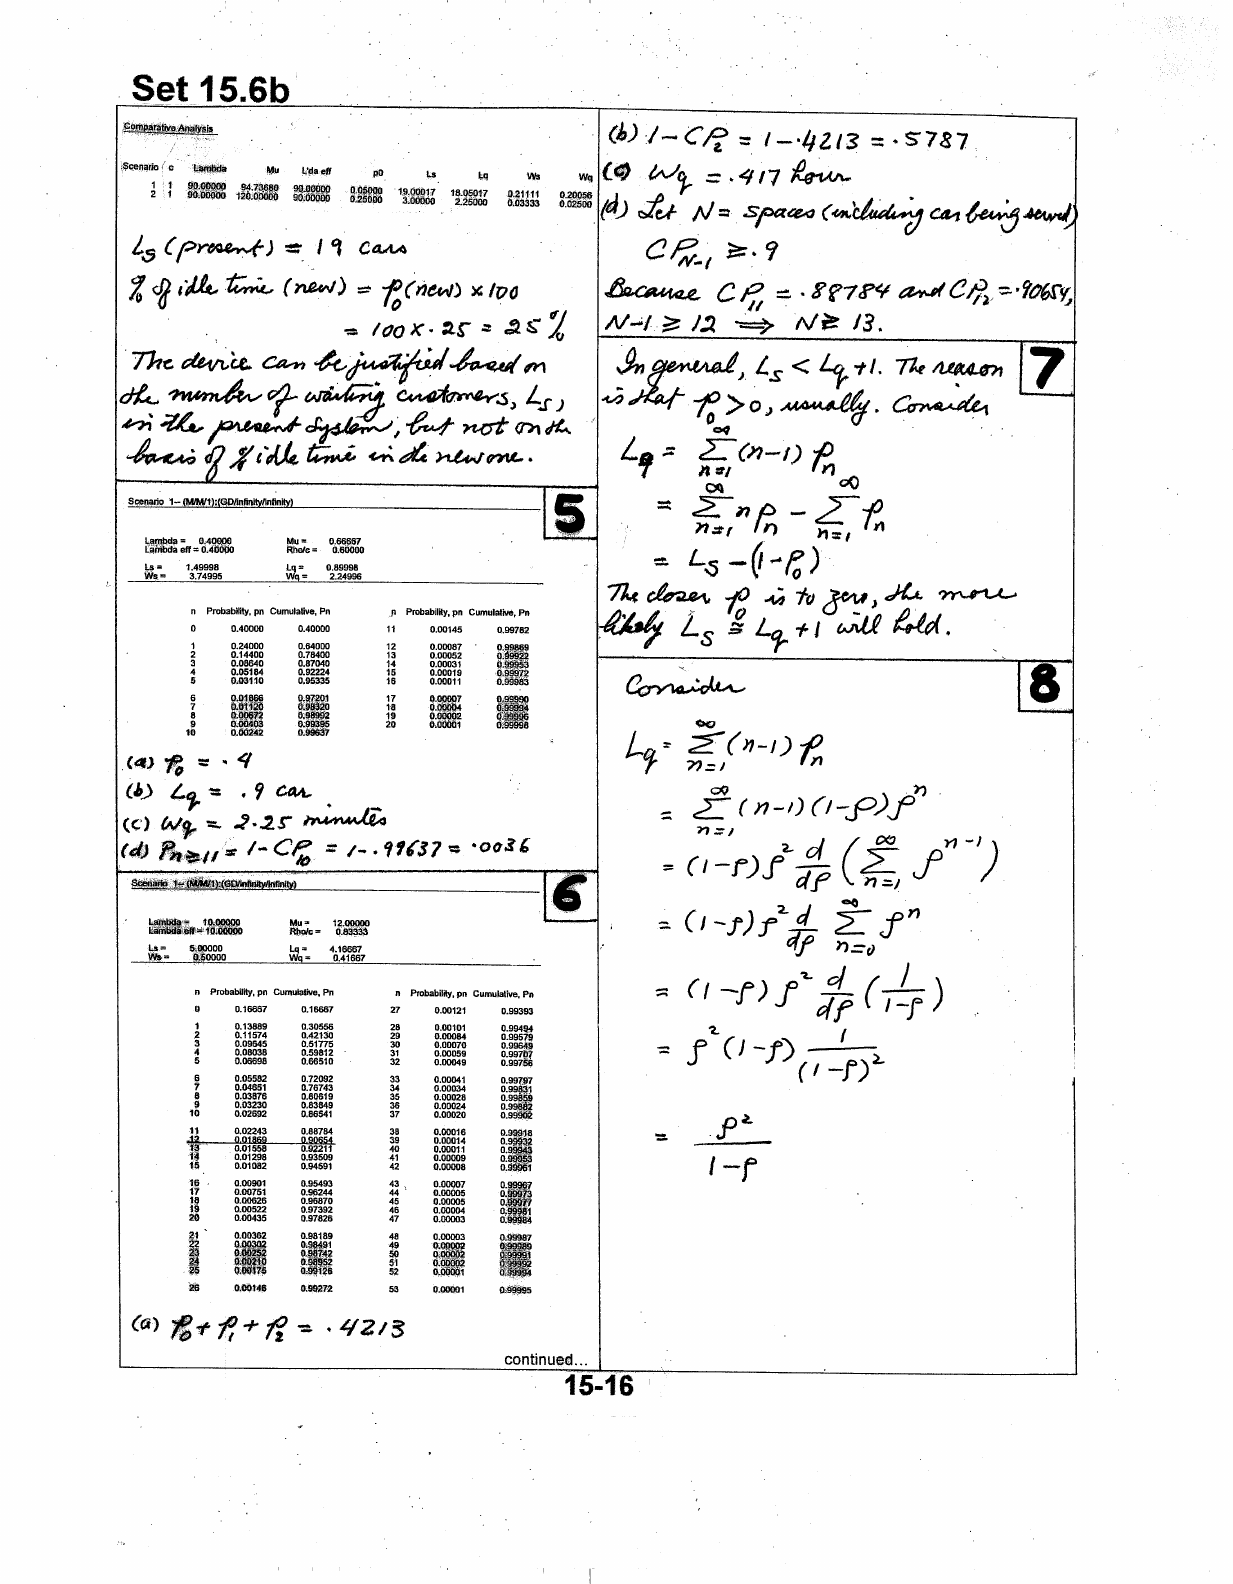 Set 15.6b
Comparative Analysis
Scenario c Lambda Mu L'da eff p0 Ls Lq Ws Wq
1 1 90.00000 94.73680 90.00000 0.05000 19.00017 18.05017 0.21111 0.20056
2 1 90.00000 120.00000 90.00000 0.25000 3.00000 2.25000 0.03333 0.02500
Ls (present) = 19 cars
% of idle time (new) = p0(new) x 100
= 100 x .25 = 25%
The device can be justified based on
the number of waiting customers, Ls,
in the present system, but not on the
basis of % idle time in the new one.
5
Scenario 1-- (M/M/1):(GD/infinity/infinity)
Lambda = 0.40000 Mu = 0.66667
Lambda eff = 0.40000 Rho/c = 0.60000
Ls = 1.49998 Lq = 0.89998
Ws = 3.74995 Wq = 2.24996
n Probability, pn Cumulative, Pn n Probability, pn Cumulative, Pn
0 0.40000 0.40000 11 0.00145 0.99782
1 0.24000 0.64000 12 0.00087 0.99869
2 0.14400 0.78400 13 0.00052 0.99922
3 0.08640 0.87040 14 0.00031 0.99953
4 0.05184 0.92224 15 0.00019 0.99972
5 0.03110 0.95335 16 0.00011 0.99983
6 0.01866 0.97201 17 0.00007 0.99990
7 0.01120 0.98320 18 0.00004 0.99994
8 0.00672 0.98992 19 0.00002 0.99996
9 0.00403 0.99395 20 0.00001 0.99998
10 0.00242 0.99637
(a) p0 = .4
(b) Lq = .9 car
(c) Wq = 2.25 minutes
(d) Pn≥11 = 1-CP10 = 1-.99637 = .0036
6
Scenario 1-- (M/M/1):(GD/infinity/infinity)
Lambda = 10.00000 Mu = 12.00000
Lambda eff = 10.00000 Rho/c = 0.83333
Ls = 5.00000 Lq = 4.16667
Ws = 0.50000 Wq = 0.41667
n Probability, pn Cumulative, Pn n Probability, pn Cumulative, Pn
0 0.16667 0.16667 27 0.00121 0.99393
1 0.13889 0.30556 28 0.00101 0.99494
2 0.11574 0.42130 29 0.00084 0.99579
3 0.09645 0.51775 30 0.00070 0.99649
4 0.08038 0.59812 31 0.00059 0.99707
5 0.06698 0.66510 32 0.00049 0.99756
6 0.05582 0.72092 33 0.00041 0.99797
7 0.04651 0.76743 34 0.00034 0.99831
8 0.03876 0.80619 35 0.00028 0.99859
9 0.03230 0.83849 36 0.00024 0.99882
10 0.02692 0.86541 37 0.00020 0.99902
11 0.02243 0.88784 38 0.00016 0.99918
12 0.01869 0.90654 39 0.00014 0.99932
13 0.01558 0.92211 40 0.00011 0.99943
14 0.01298 0.93509 41 0.00009 0.99953
15 0.01082 0.94591 42 0.00008 0.99961
16 0.00901 0.95493 43 0.00007 0.99967
17 0.00751 0.96244 44 0.00005 0.99973
18 0.00626 0.96870 45 0.00005 0.99977
19 0.00522 0.97392 46 0.00004 0.99981
20 0.00435 0.97826 47 0.00003 0.99984
21 0.00362 0.98189 48 0.00003 0.99987
22 0.00302 0.98491 49 0.00002 0.99989
23 0.00252 0.98742 50 0.00002 0.99991
24 0.00210 0.98952 51 0.00002 0.99992
25 0.00175 0.99126 52 0.00001 0.99994
26 0.00146 0.99272 53 0.00001 0.99995
(a) p0 + p1 + p2 = .4213
continued...
(b) 1-CP2 = 1-.4213 = .5787
(c) Wq = .417 hour
(d) Let N = spaces (including car being served)
CPN-1 ≥ .9
Because CP11 = .88784 and CP12 = .90654,
N-1 ≥ 12 ⟹ N ≥ 13.
7
In general, Ls < Lq + 1. The reason
is that p0 > 0, usually. Consider
Lq = ∞Σn=1 (n-1) pn
= ∞Σn=1 n pn - ∞Σn=1 pn
= Ls - (1-p0)
The closer p0 is to zero, the more
likely Ls ≅ Lq + 1 will hold.
8
Consider
Lq = ∞Σn=1 (n-1) pn
= ∞Σn=1 (n-1)(1-ρ)ρ^n
= (1-ρ)ρ² d/dρ (∞Σn=1 ρ^n-1)
= (1-ρ)ρ² d/dρ ∞Σn=0 ρ^n
= (1-ρ)ρ² d/dρ (1/1-ρ)
= ρ²(1-ρ) 1/(1-ρ)²
= ρ²/1-ρ
15-16